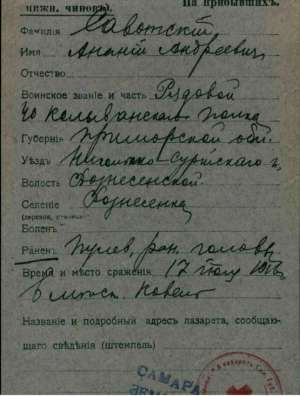 нижн. чиновъ). На прибывшихъ.
Фамилія Савотскій
Имя Ананій Андреевич
Отчество
Воинское званіе и часть Рядовой
40 Колыванскаго полка
Губернія Приморской обл.
Уѣздъ Никольско Суріискаго у.
Волость Вознесенской
Селеніе Вознесенка
Боленъ
Раненъ Пулев. ран. головы
Время и мѣсто сраженія 17 Іюля
Названіе и подробный адресъ лазарета, сообщаю-
щаго свѣдѣнія (штемпель)
САМАРА